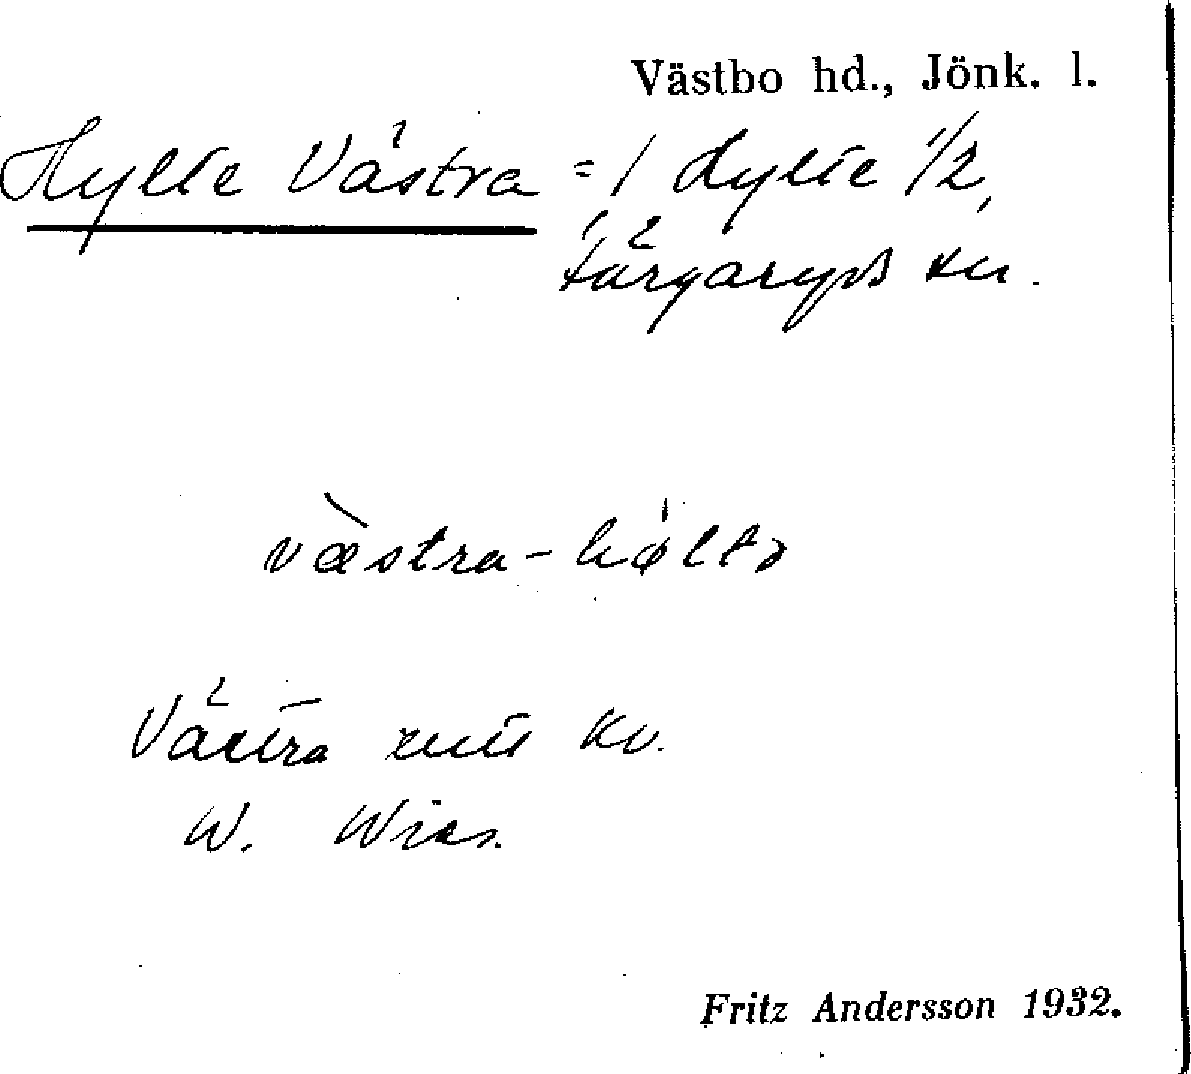 Västbo hd., Jönk. l.
Hylte Västra = / Hylte 1/2,
Färgaryds sn.
væ̀stra-hø̍ltə
Västra kv.
W.
Fritz Andersson 1932.